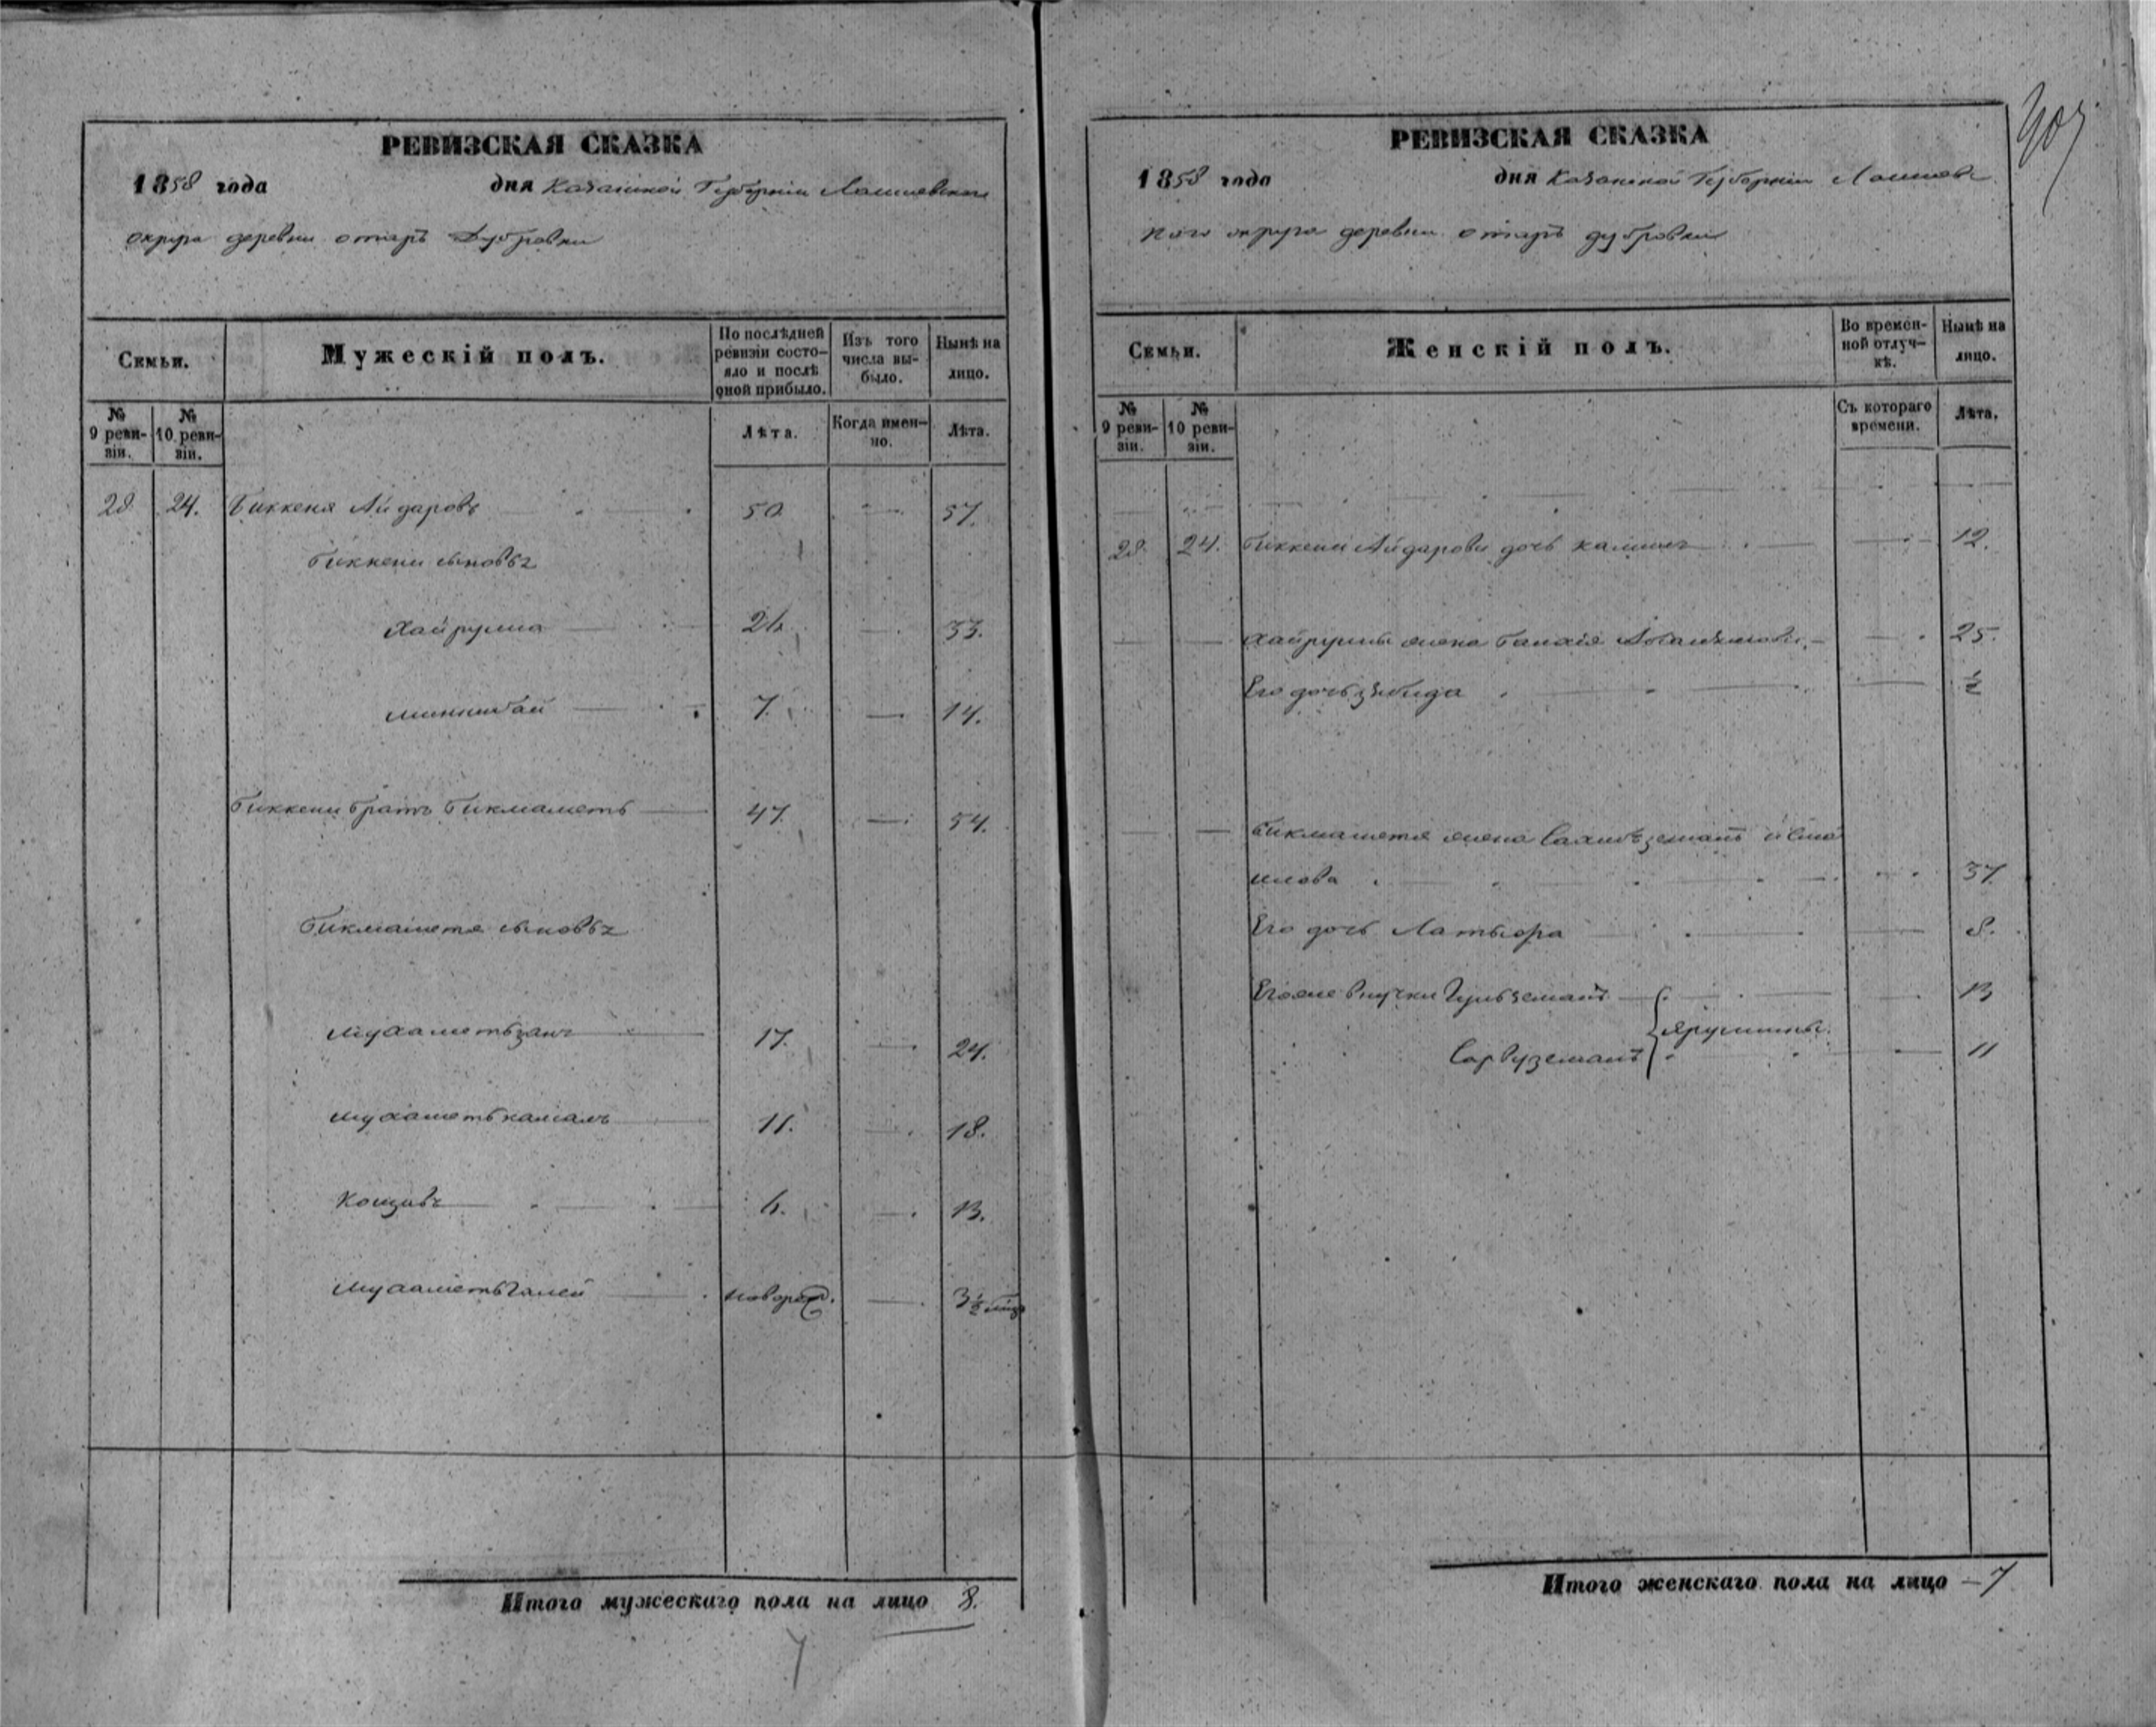 РЕВИЗСКАЯ СКАЗКА
1858 года дня Казанской Губерніи Лаишевскаго
округа деревни отаръ Дубровки
Семьи.
Мужескій полъ.
По послѣдней ревизіи состояло и послѣ оной прибыло.
Изъ того числа выбыло.
Нынѣ на лицо.
№ 9 ревизіи.
№ 10 ревизіи.
Лѣта.
Когда именно.
Лѣта.
28 24. Биккеня Айдаровъ 50 — 57.
Биккени сыновьѣ
Хайрулла 26. — 33.
Миннибай 7. — 14.
Биккени братъ Бикмаметь 47. — 54.
Бикмаметя сыновьѣ
Мухаметьзянъ 17. — 24.
Мухаметькамалъ 11. — 18.
6. — 13.
Мухаметьгалей новорож. — 3½
Итого мужескаго пола на лицо 8.
РЕВИЗСКАЯ СКАЗКА
1858 года дня Казанской Губерніи Лаишевс
каго округа деревни отаръ дубровки
Семьи.
Женскій полъ.
Во временной отлучкѣ.
Нынѣ на лицо.
№ 9 ревизіи.
№ 10 ревизіи.
Съ котораго времени.
Лѣта.
28. 24. Биккени Айдарова дочь — 12.
— — Хайруллы жена — 25.
Его дочь — ½
— — Бикмаметя жена исма
илова 37.
Его дочь — 8.
Его же внучки Гульземалъ — 13
Сарвуземалъ — 11
Итого женскаго пола на лицо — 7